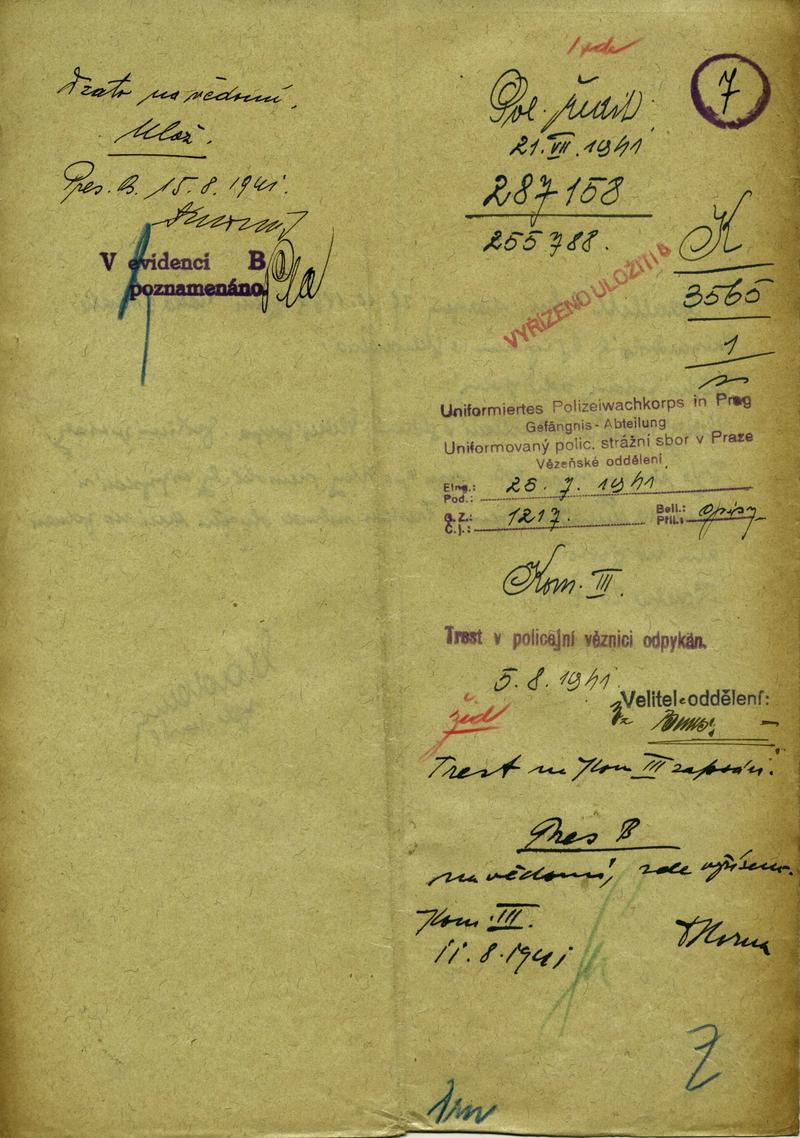 na vědomí.
Ulož.
Pres. B. 15.8.1941.
V evidenci B
poznamenáno.
7
Pol. ředit.
21. VII. 1941
287158
255788.
K
3565
1
VYŘÍZENO ULOŽITI
Uniformiertes Polizeiwachkorps in Prag
Gefängnis - Abteilung
Uniformovaný polic. strážní sbor v Praze
Vězeňské oddělení
Eing.:
Pod.: 25. 7. 1941
G. Z.:
Č.j.: 1217. Beil.:
Příl.: opisy
Kom. III.
Trest v policejní věznici odpykán.
5. 8. 1941.
Velitel oddělení:
žid
Trest na Kom III zapsán.
Pres B
na vědomí, zde vyřízeno.
Kom. III.
11. 8. 1941